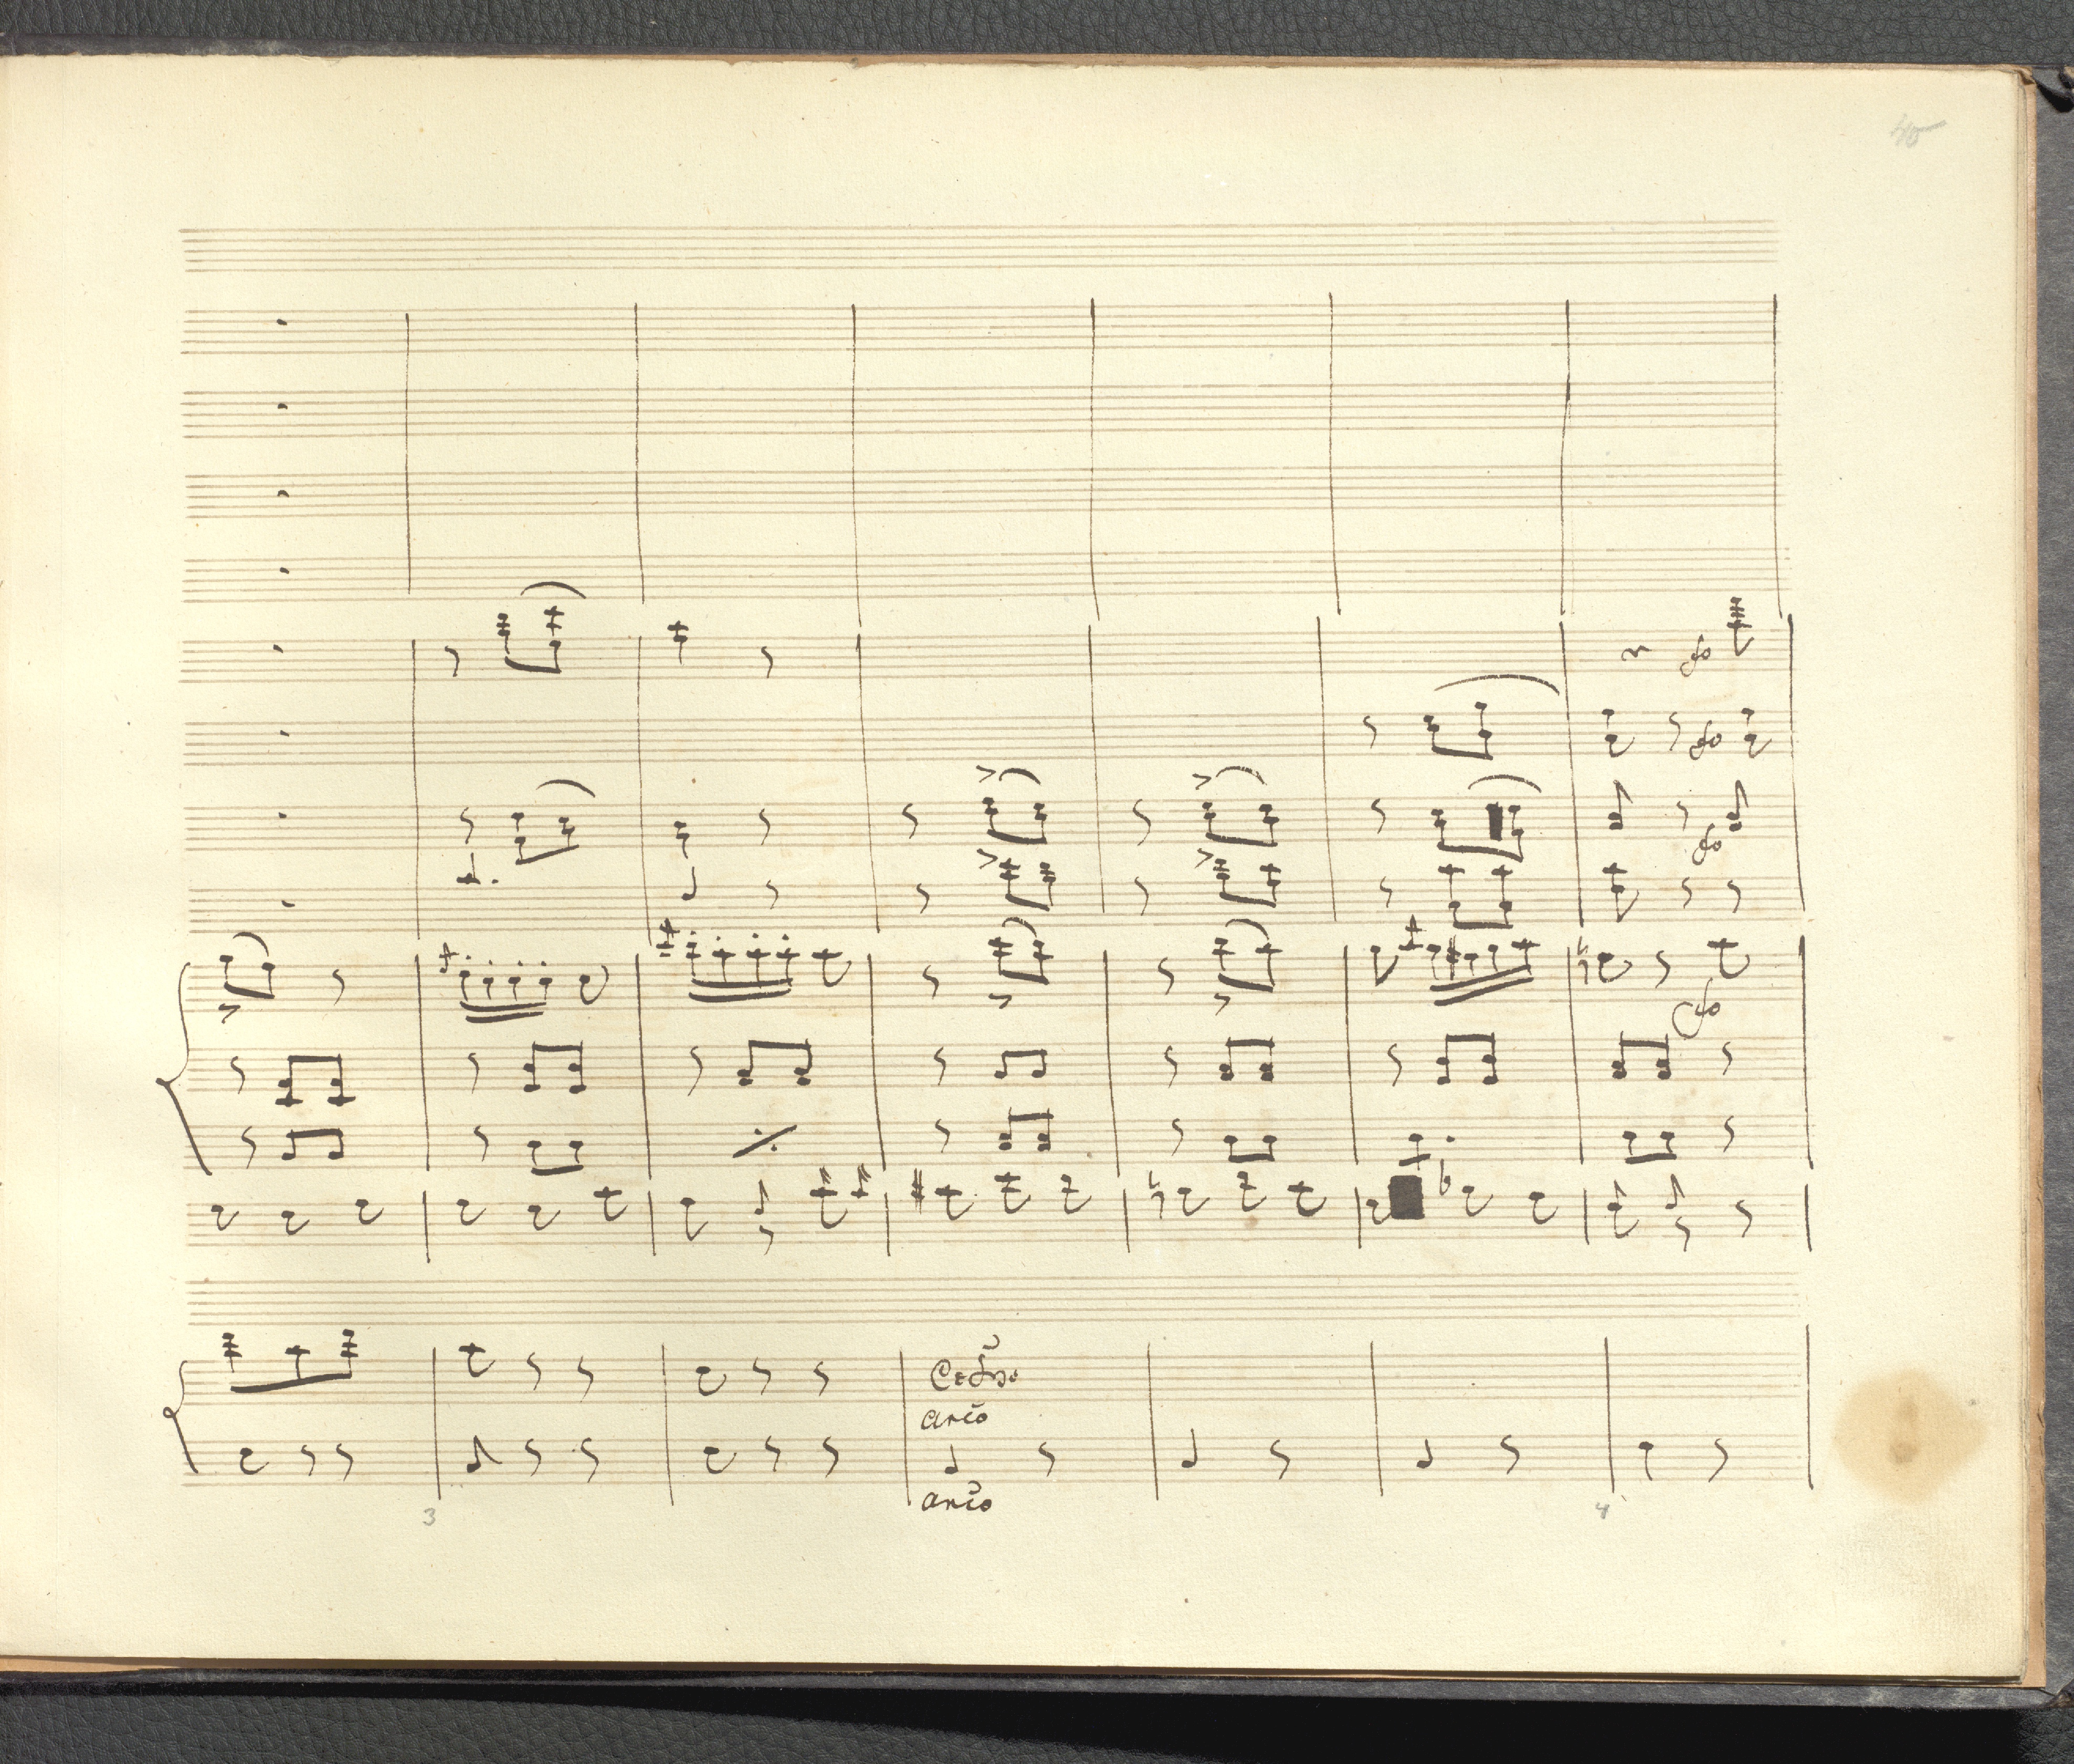 45
fo
fo
fo
fo
arco
arco
3 4